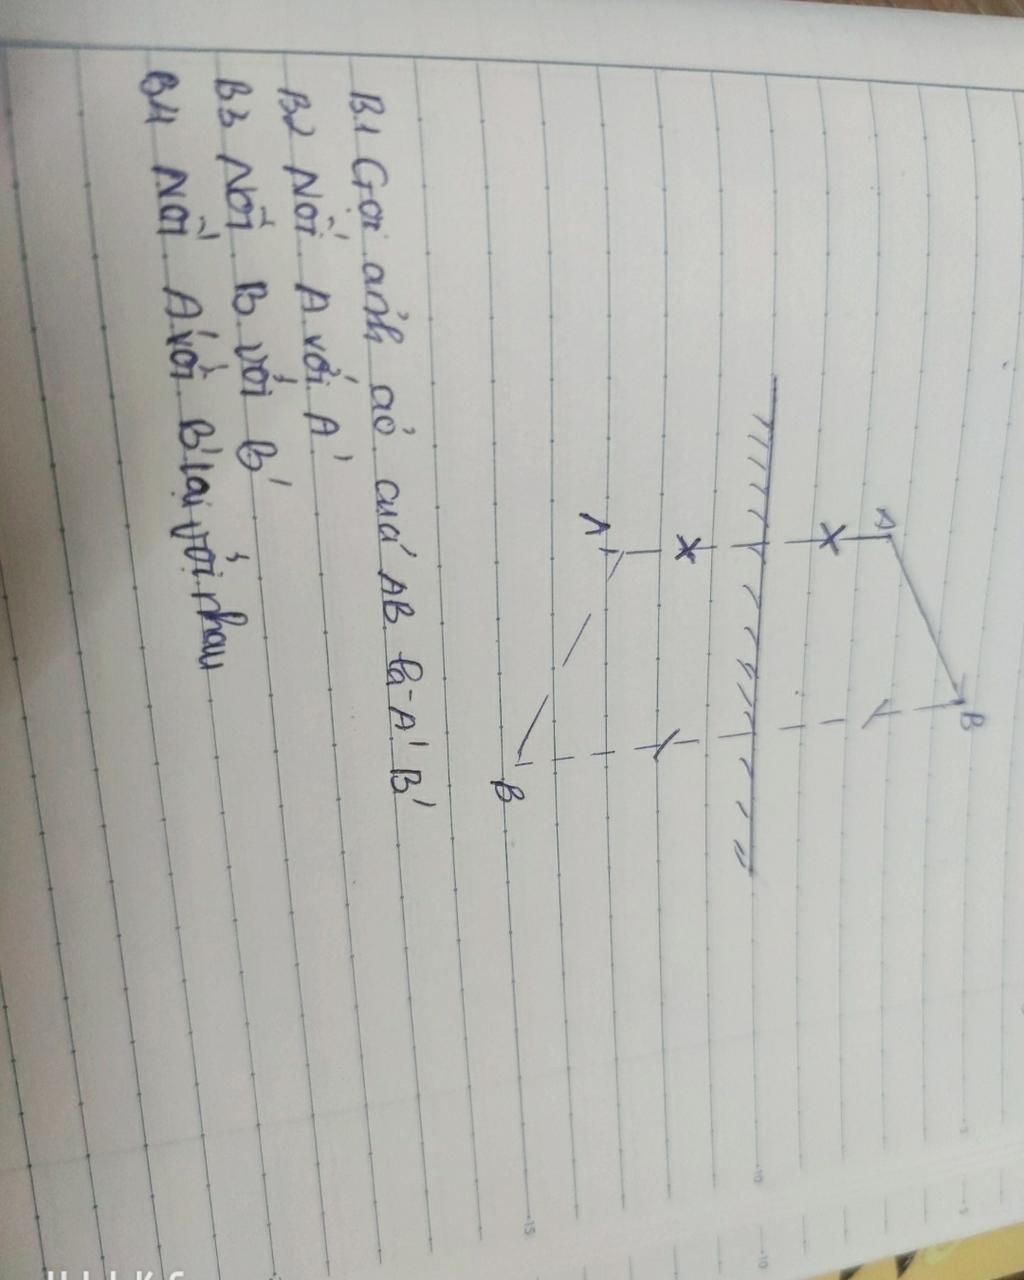 A
B
A
B
B1 Gọi ảnh ảo của AB là A'B'
B2 Nối A với A'
B3 Nối B với B'
B4 Nối A' với B' lại với nhau
5
5
10
10
15